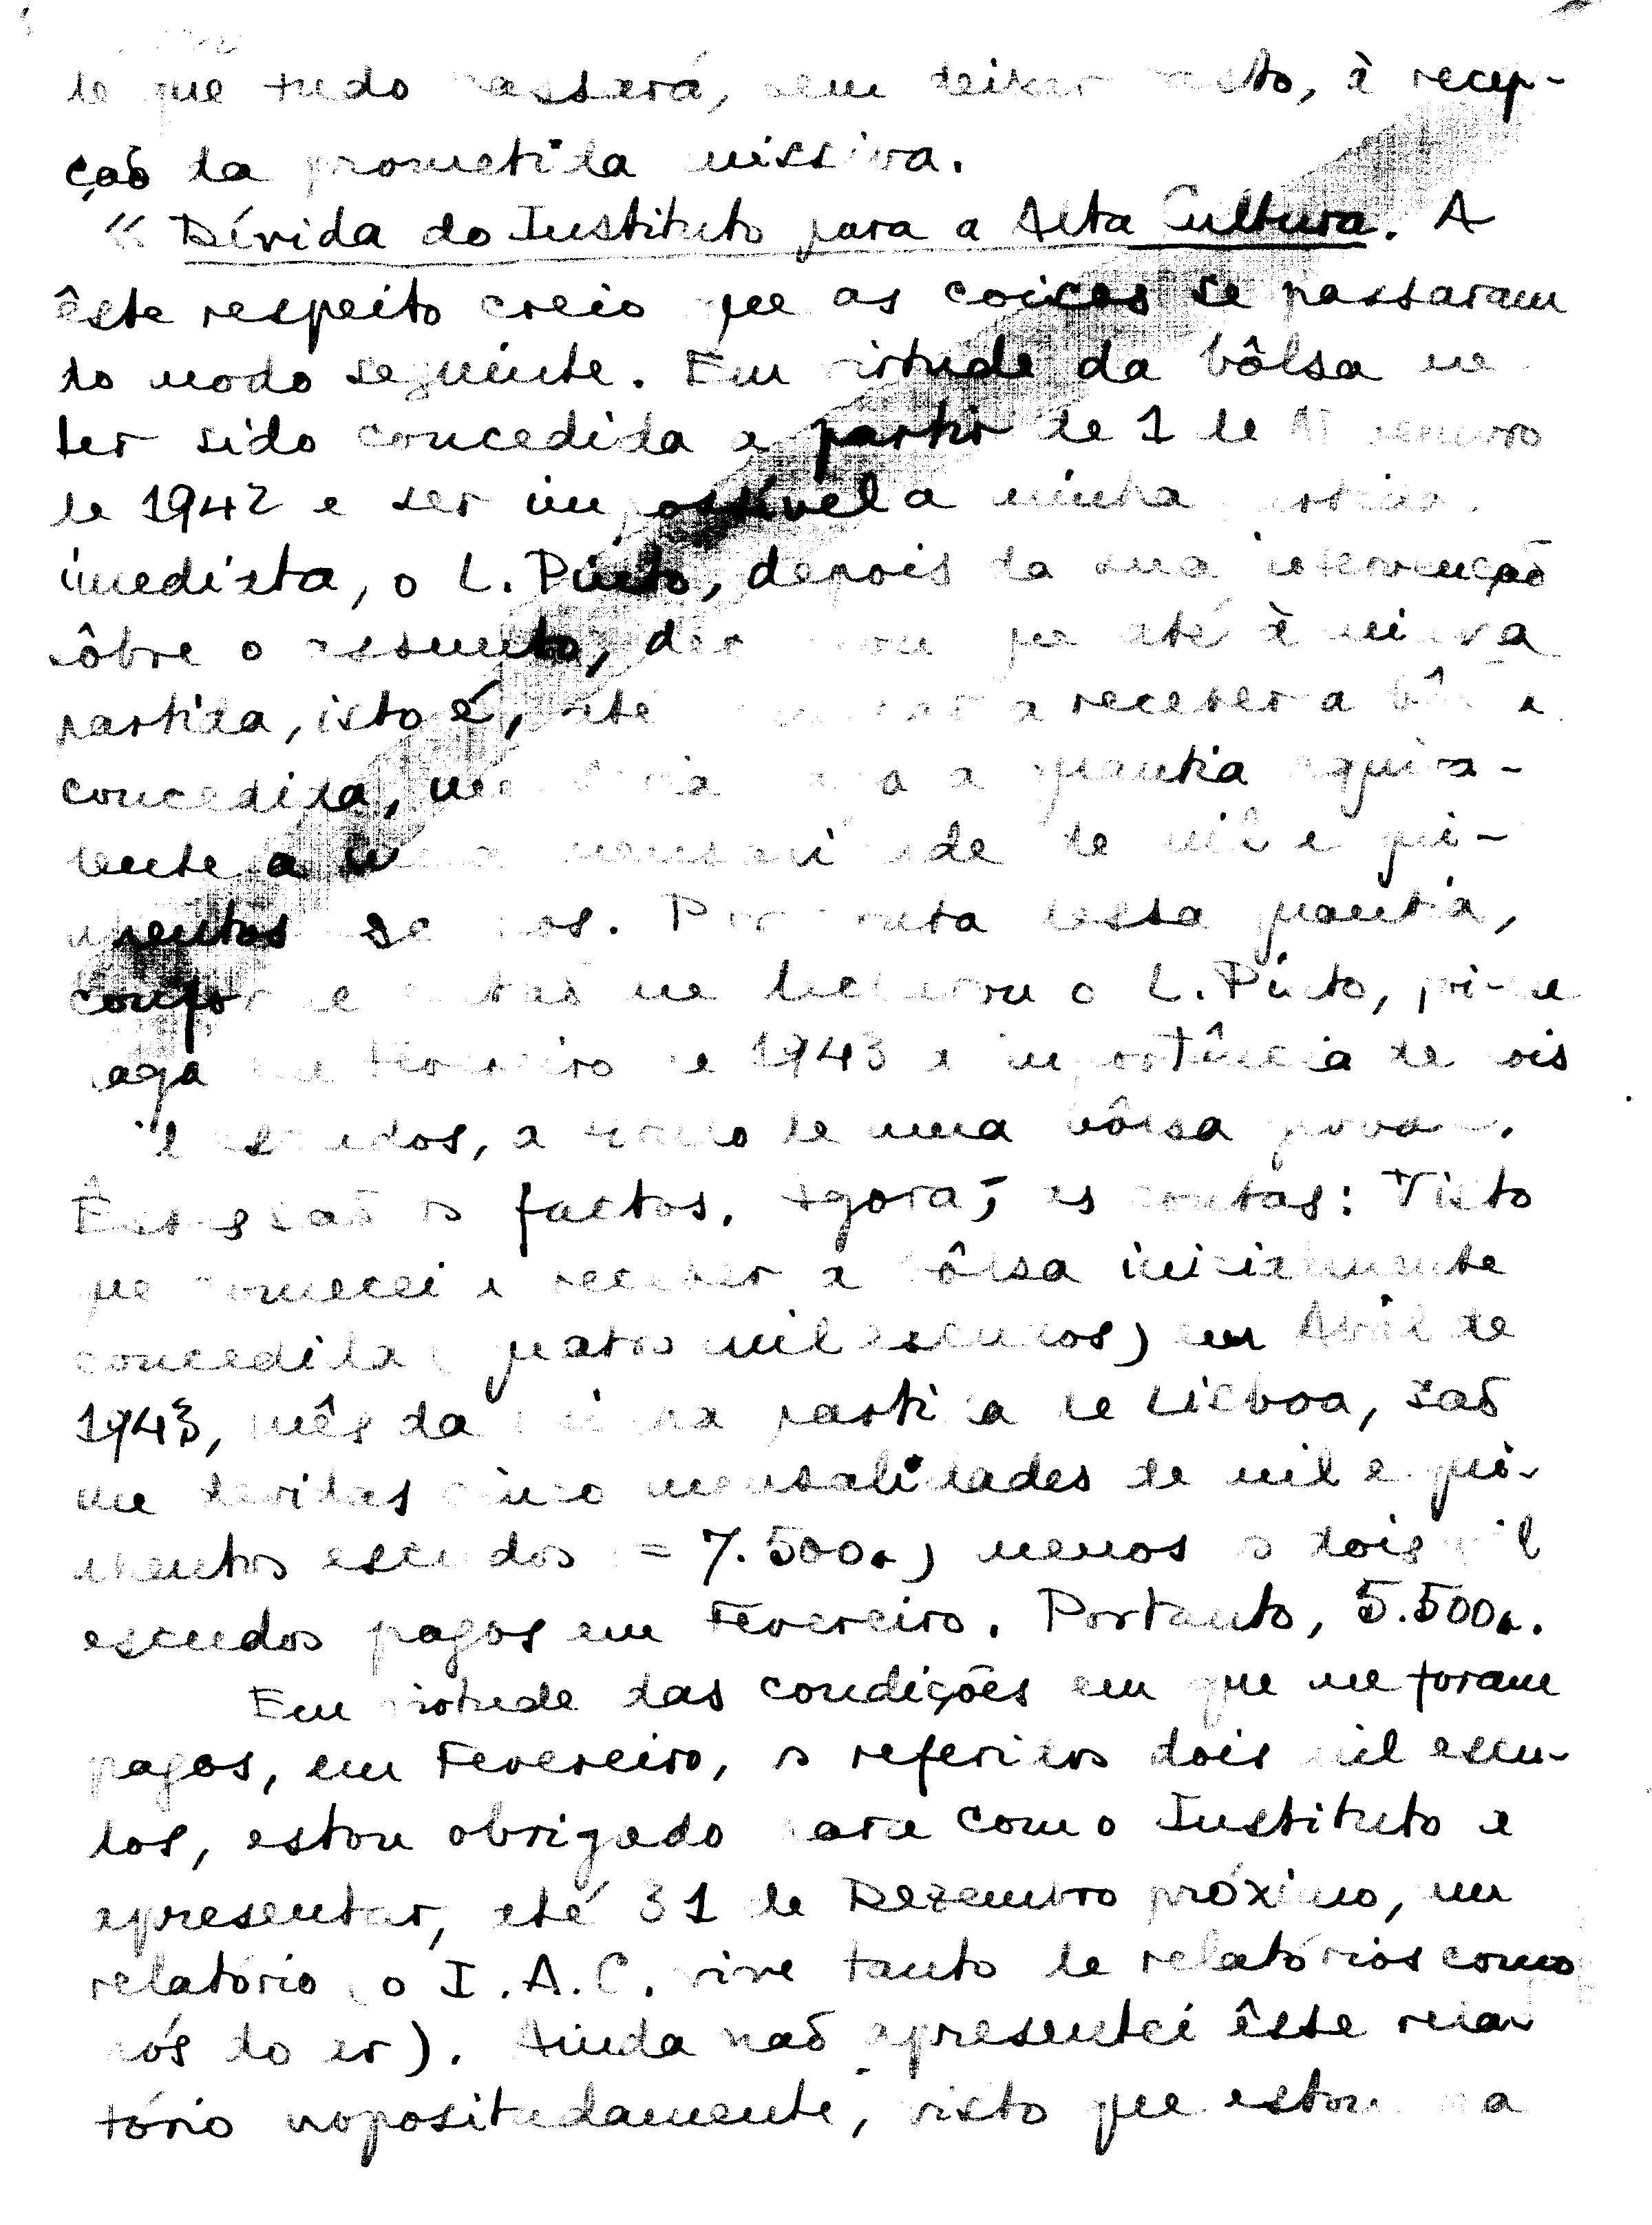 de que tudo passará, sem deixar rasto, à recep-
ção da prometida missiva.
" Dívida do Instituto para a Alta Cultura. A
êste respeito creio que as coisas se passaram
do modo seguinte. Em virtude da bôlsa me
ter sido concedida a partir de 1 de Novembro
de 1942 e ser impossível a minha partida
imediata, o L. Pinto, depois da sua intervenção
sôbre o assunto, que até à minha
partida, isto é, até a receber a bôlsa
concedida, me a quantia equiva-
lente a uma mensalidade de mil e qui-
nhentos escudos. Por conta dessa quantia,
conforme então me declarou o L. Pinto, foi-me
paga em Fevereiro de 1943 a importância de dois
mil escudos, a título de uma bôlsa
Êstes são os factos. Agora, as contas: Visto
que comecei a receber a bôlsa inicialmente
concedida (quatro mil escudos) em Abril de
1943, mês da minha partida de Lisboa, são
me devidas cinco mensalidades de mil e qui-
nhentos escudos (= 7.500$) menos os dois mil
escudos pagos em Fevereiro. Portanto, 5.500$.
Em virtude das condições em que me foram
pagos, em Fevereiro, os referidos dois mil escu-
dos, estou obrigado para com o Instituto a
apresentar, até 31 de Dezembro próximo, um
relatório (o I.A.C. vive tanto de relatórios como
nós do ar). Ainda não apresentei êsse rela-
tório propositadamente, visto que estou na